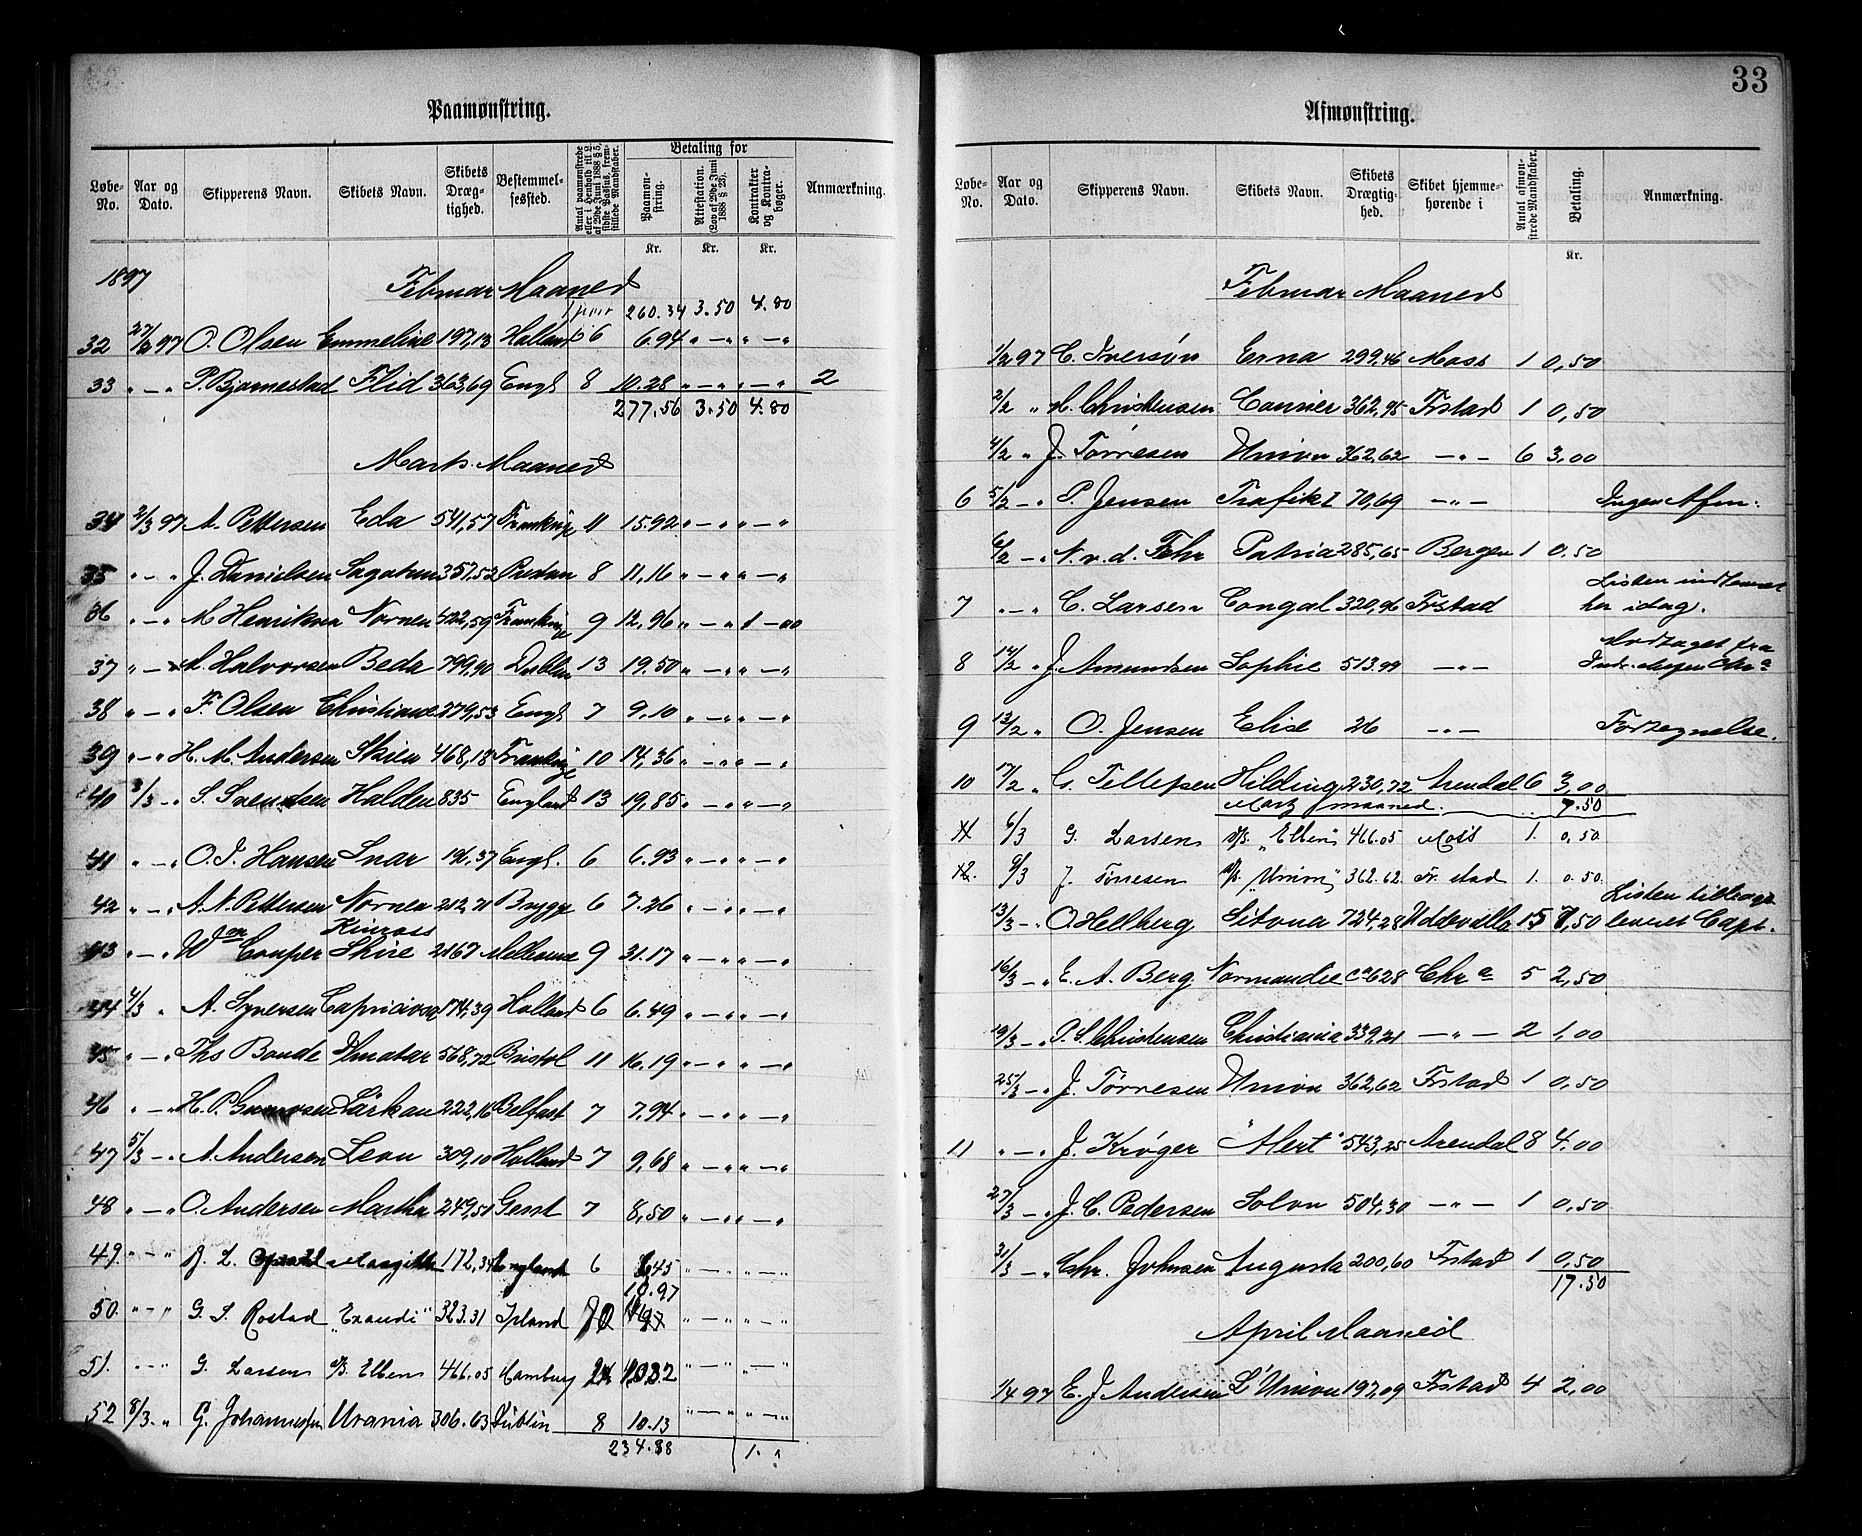 33
Paamønstring.
Løbe-No. Aar og Dato. Skipperens Navn. Skibets Navn. Skibets Dræg-tighed. Bestemmel-sessted. Antal paamønstrede eller i Henhold til L. af 29de Juni 1888 § 5, sidste Passus, frem-stillede Mandskaber. Betaling for Paamøn-string. Attestation. (Lov af 29de Juni 1888 § 23). Kontrakter og Kontra-bøger. Anmærkning.
Kr. Kr. Kr.
1897 Februar Maaned
260.34 3.50 4.80
32 27/2 97 O. Olsen Emmeline 197,13 Holland 6 6.94 " — " " — "
33 " — " P. Bjørnestad Flid 363,69 Engl 8 10.28 " — " " — " 2
277.56 3.50 4.80
Marts Maaned
34 2/3 97 A. Pettersen Eda 541,57 Frankrige 11 15.92 " — " " — "
35 " — " J. Danielsen Sagatun 357,52 Preston 8 11,16 " — " " — "
36 " — " M Henriksen Nornen 422,59 Frankrige 9 12,96 " — " 1 — 00
37 " — " A. Halvorsen Beda 799,90 Dublin 13 19.50 " — " " — "
38 " — " F. Olsen Christiane 279,53 Engl 7 9.10 " — " " — "
39 " — " H. M. Andersen Skien 468,18 Frankrige 10 14,36 " — " " — "
40 3/3 — " S. Svendsen Halden 835 England 13 19,85 " — " " — "
41 " — " O. J. Hansen Snar 196,37 Engl. 6 6.93 " — " " — "
42 " — " A. N. Pettersen Nornen 212,71 Brygge 6 7.26 " — " " — "
43 " — " Wm Couper Kinross Shire 2167 Melbourne 9 31.17 " — " " — "
44 4/3 " A. Syversen Capricioso 174,39 Holland 6 6.49 " — " " — "
45 " — " Ths Bonde Ilmatar 568,72 Bristol 11 16.19 " — " " — "
46 " — " H. P. Lärkan 222,16 Belfast 7 7.94 " — " " — "
47 5/3 — " A. Andersen Leon 309,10 Holland 7 9,68 " — " " — "
48 " — " O. Andersen Martha 249,51 Gent 7 8,50 " — " " — "
49. " — " A. L. Margitta 172,34 England 6 6,45 " — " " — "
10.97
50. " — " G. S. Rostad "Exaudi" 323.31 Island 10 " — " " — "
51. " — " G. Larsen d/s. Ellen 466.05 Hamburg " — " " — "
52 8/3. " G. Johannesen Urania 306.63 Dublin 8 10.13 " — " " — "
234.88 1. "
Afmønstring.
Løbe-No. Aar og Dato. Skipperens Navn. Skibets Navn. Skibets Drægtig-hed. Skibet hjemme-hørende i Antal afmøn-strede Mandskaber. Betaling. Anmærkning.
Kr.
Februar Maaned
1/2 97 C. Iversøn Erna 299,46 Moss 1 0,50
2/2 " M. Christensen Courier 362,95 Frstad 1 0,50
4/2 " J. Tørresen Union 362,62 — " — 6 3,00
6 5/2 — " P. Jensen Trafik I 70,69 — " — Ingen Afm:
6/2 — " N. v. d. Fehr Patria 285,65 Bergen 1 0.50
7 " — " C. Larsen Congal 320,96 Frstad Listen indleveret her idag.
8 12/2 " J. Amundsen Sophie 513.99 — " — Modtaget fra Chra
9 13/2 " O. Jensen Elise 26 — " — Fortegnelse.
10 17/2 " G. Tellefsen Hilding 230,72 Arendal 6 3,00
Marts maaned. 7.50
11 6/3 G. Larsen d/s. "Ellen" 466.05 Moss 1. 0,50
12. 9/3 J. Tørresen d/s. "Union" 362.62. Fr. stad 1. 0.50.
13/3 — " O Hellberg Sitona 724,28 Uddevalla 15 7,50 Listen tilbage leveret Capt.
16/3 — " E. A. Berg. Normandie ca 628 Chra 5 2,50
19/3 — " P. S. Christensen Christiania 339,21 — " — 2 1,00
25/3 — " J. Tørresen Union 362,62 Frstad 1 0,50
11 " — " J. Krøger "Alert" 543,25 Arendal 8 4.00
27/3 — " J. C. Pedersen Solon 504,30 — " — 1 0,50
31/3 — " Chr. Johnsen Augusta 200,60 Frstad 1 0,50
17.50
April Maaned
1/4 97 E. J. Andersen L'Union 197,09 Frstad 4 2,00